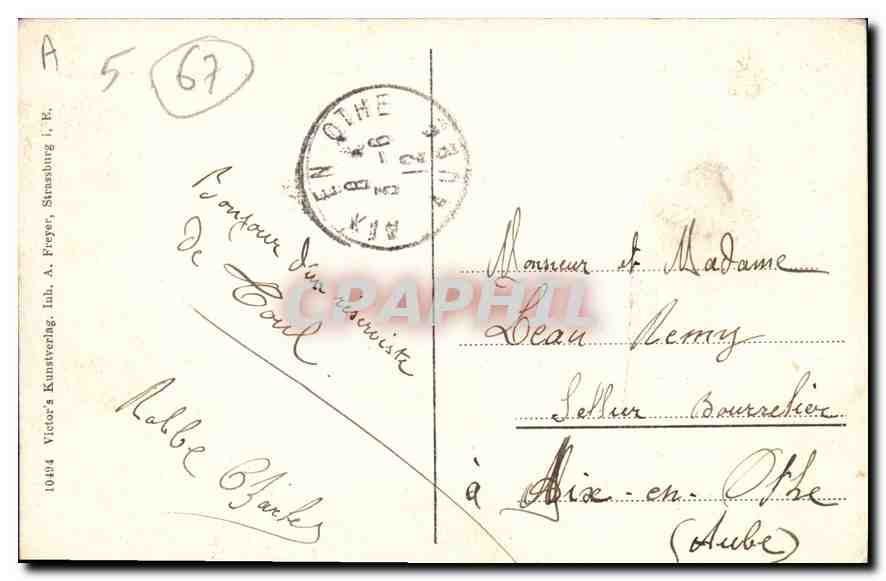 A
5
67
AIX EN OTHE
AUBE
8 *
3 - 6
12
Bonjour d'un réserviste
de Toul.
Rabbe Charles
Monsieur et Madame
Leau Remy
Sellier Bourrelier
à Aix-en-Othe
(Aube)
10494 Victor's Kunstverlag. Inh. A. Freyer, Strassburg i. E.
CPAPHIL